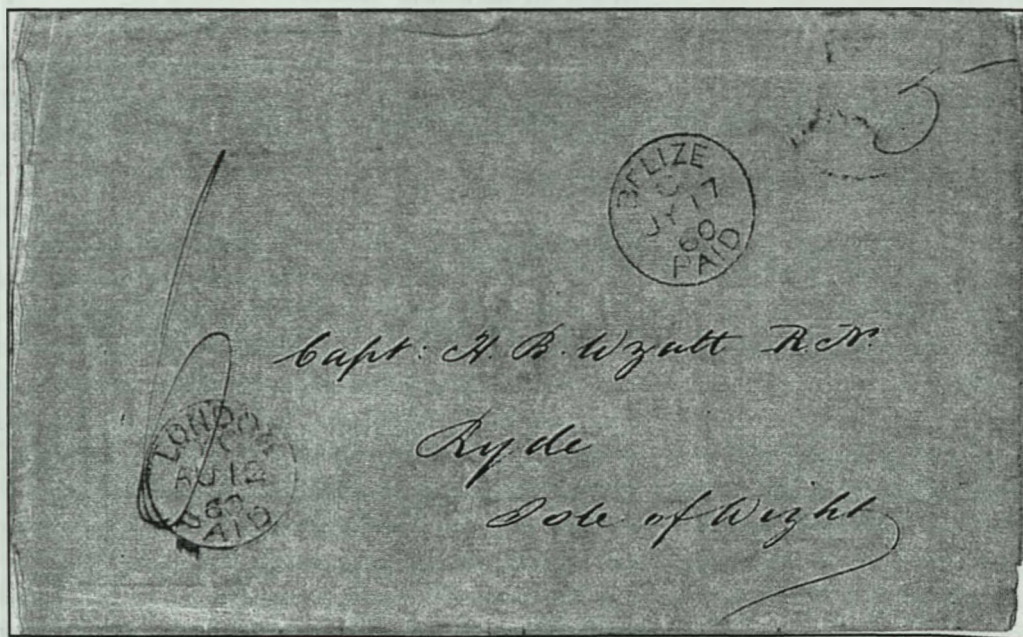 BELIZE
C
JY 17
60
PAID
Capt: H. B. Wyatt R.N.
Ryde
Isle of Wight
6
LONDON
C
AU 12
60
PAID